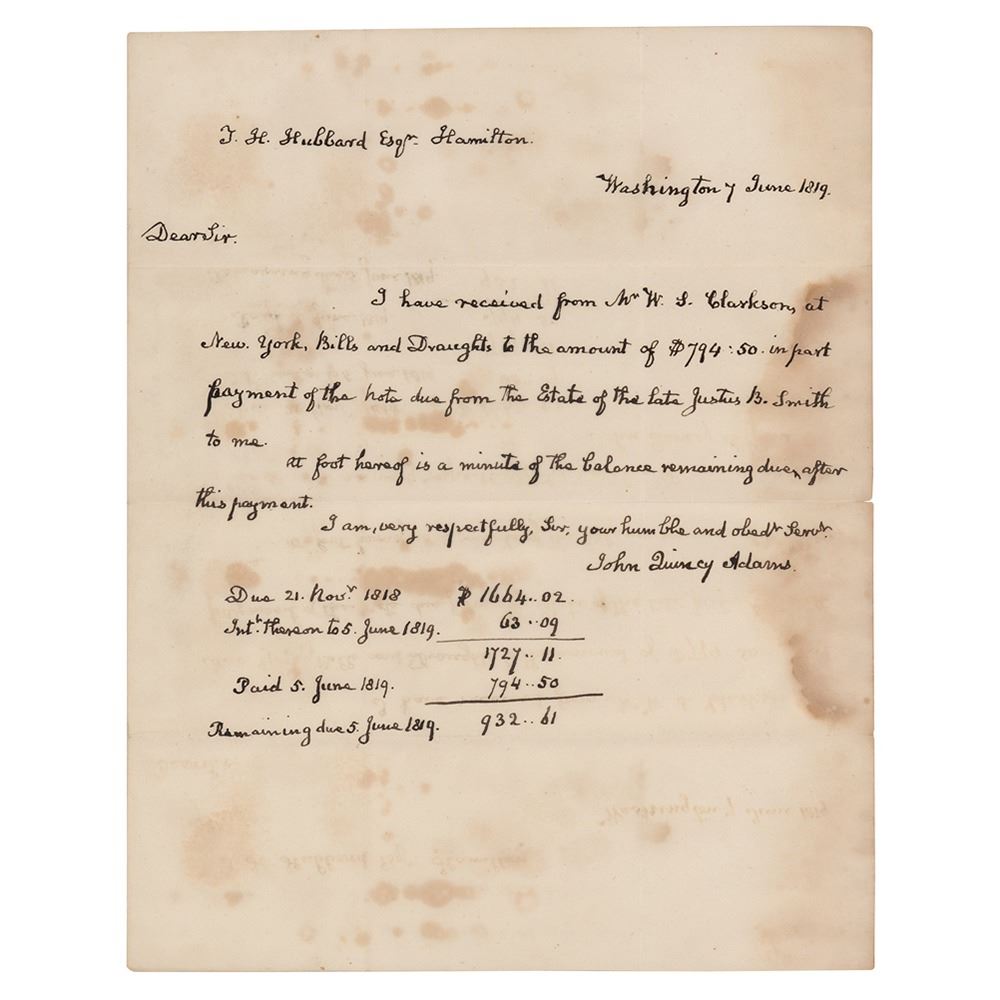 T. H. Hubbard Esqr. Hamilton.
Washington 7 June 1819.
Dear Sir.
I have received from Mr W. S. Clarkson, at
New. York, Bills and Draughts to the amount of $794..50. in part
payment of the note due from the Estate of the late Justus B. Smith
to me.
At foot hereof is a minute of the balance remaining due, after
this payment.
I am, very respectfully, Sir, your humble and obedt Servt.
John Quincy Adams.
Due 21. Novr 1818 $ 1664..02.
Intt. thereon to 5. June 1819. 63..09
1727..11.
Paid 5. June 1819. 794..50
Remaining due 5. June 1819. 932..61